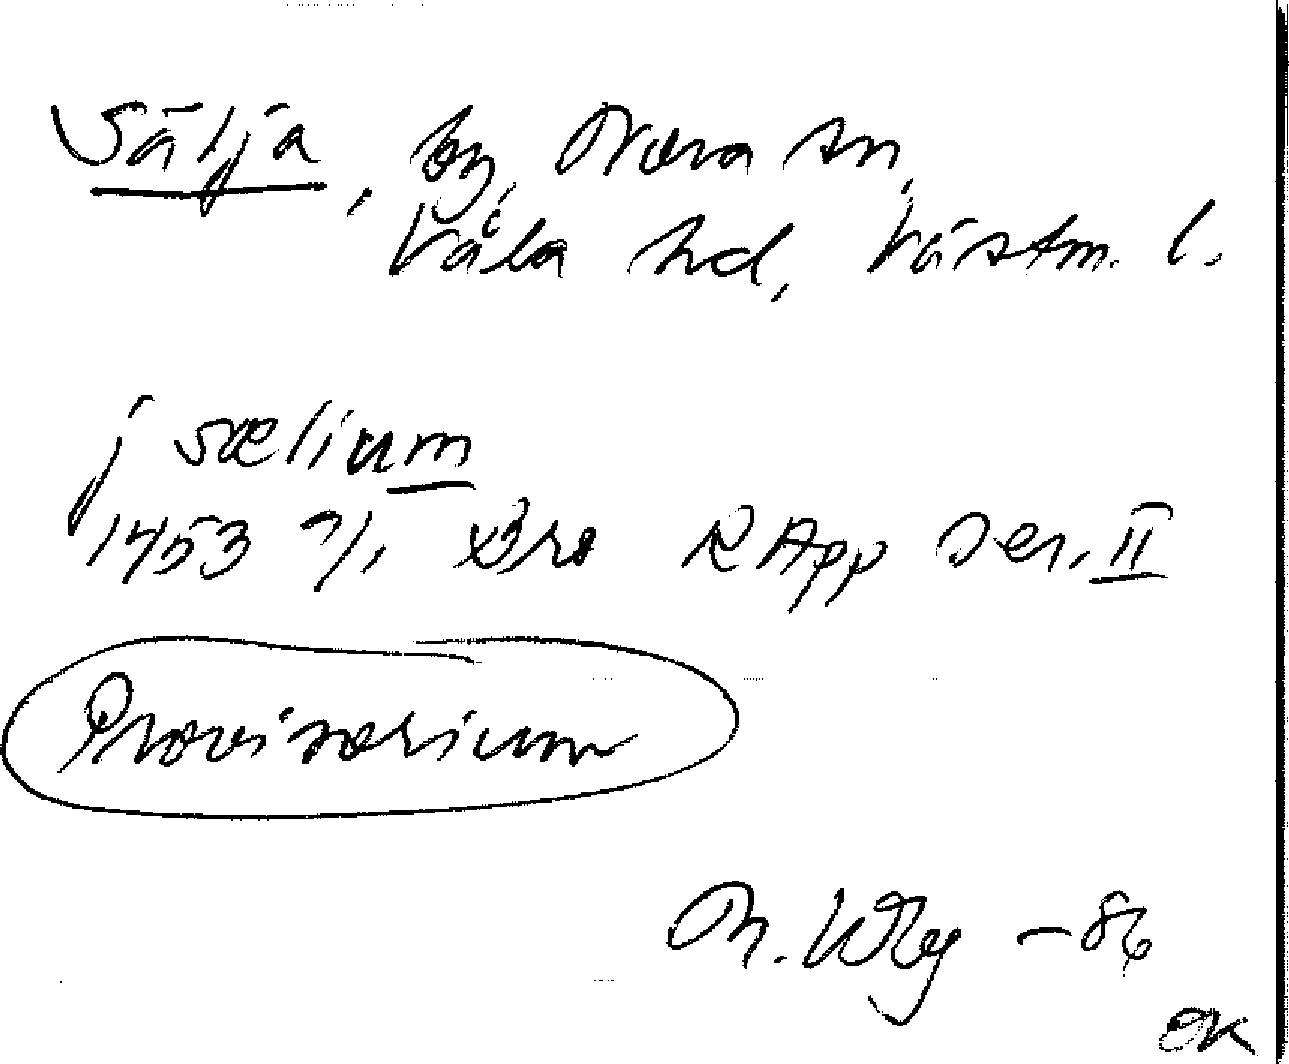 Sälja, by, Nora sn,
Våla hd, Västm. l.
j sælium
1453 7/1 Bro RApp ser. II
Provisorium
M. Wbg -86
EK